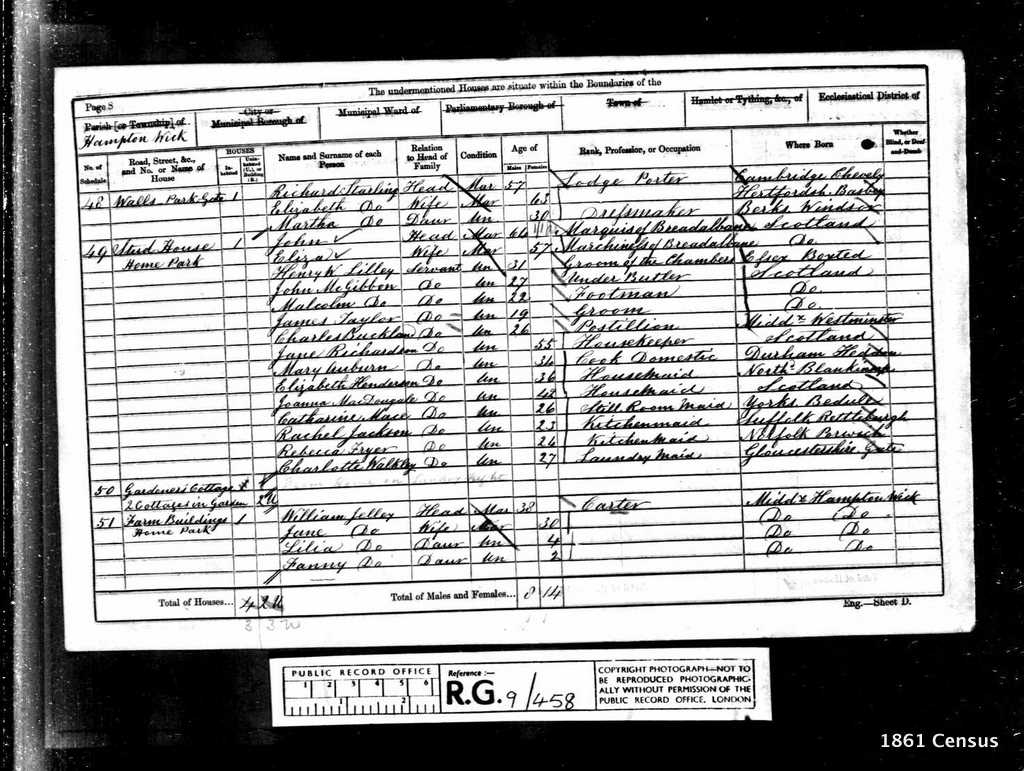 The undermentioned Houses are situate within the Boundaries of the
Page 8
Parish [or Township] of
Hampton Wick
City or Municipal Borough of
Municipal Ward of
Parliamentary Borough of
Town of
Hamlet or Tything, &c., of
Ecclesiastical District of
No. of Schedule
Road, Street, &c., and No. or Name of House
HOUSES
Inhabited
Uninhabited (U.), or Building (B.)
Name and Surname of each Person
Relation to Head of Family
Condition
Age of
Males
Females
Rank, Profession, or Occupation
Where Born
Whether Blind, or Deaf-and-Dumb
48 Walls Park Gate 1 Richard Starling Head Mar 57 Lodge Porter Cambridge Chevely
Elizabeth Do Wife Mar 63 Hertfordsh
Martha Do Daur Un 30 Berks Windsor
49 Stud House 1 John Head Mar 64 Marquis of Breadalbane Scotland
Home Park Eliza Wife Mar 57 Marchiness of Breadalbane Do
Henry W Lilley Servant Un 31 Groom of the Chambers Essex Boxted
John McGibbon Do Un 27 Under Butler Scotland
Malcolm Do Do Un 22 Footman Do
James Taylor Do Un 19 Groom Do
Charles Do Un 26 Postillion Middx Westminster
Jane Richardson Do Un 55 Housekeeper Scotland
Mary Auburn Do Un 34 Cook Domestic Durham
Elizabeth Henderson Do Un 36 Housemaid North
Joanna MacDougale Do Un 42 Housemaid Scotland
Catharine Mace Do Un 26 Still Room Maid Yorks
Rachel Jackson Do Un 23 Kitchenmaid Suffolk
Rebecca Fryer Do Un 24 Kitchen Maid Norfolk
Charlotte Walkley Do Un 27 Laundry Maid Gloucestershire
50 Gardeners Cottage
2 Cottages in Garden 2U
51 Farm Buildings 1 William Jelley Head Mar 38 Carter Middx Hampton Wick
Home Park Jane Do Wife Mar 30 Do Do
Lilia Do Daur Un 4 Do Do
Fanny Do Daur Un 2 Do Do
Total of Houses... 4 2U
Total of Males and Females... 8 14
3 3U
Eng.—Sheet D.
PUBLIC RECORD OFFICE
1 2 3 4 5 6
1 2
Reference :—
R.G. 9/458
COPYRIGHT PHOTOGRAPH—NOT TO
BE REPRODUCED PHOTOGRAPHIC-
ALLY WITHOUT PERMISSION OF THE
PUBLIC RECORD OFFICE, LONDON
1861 Census